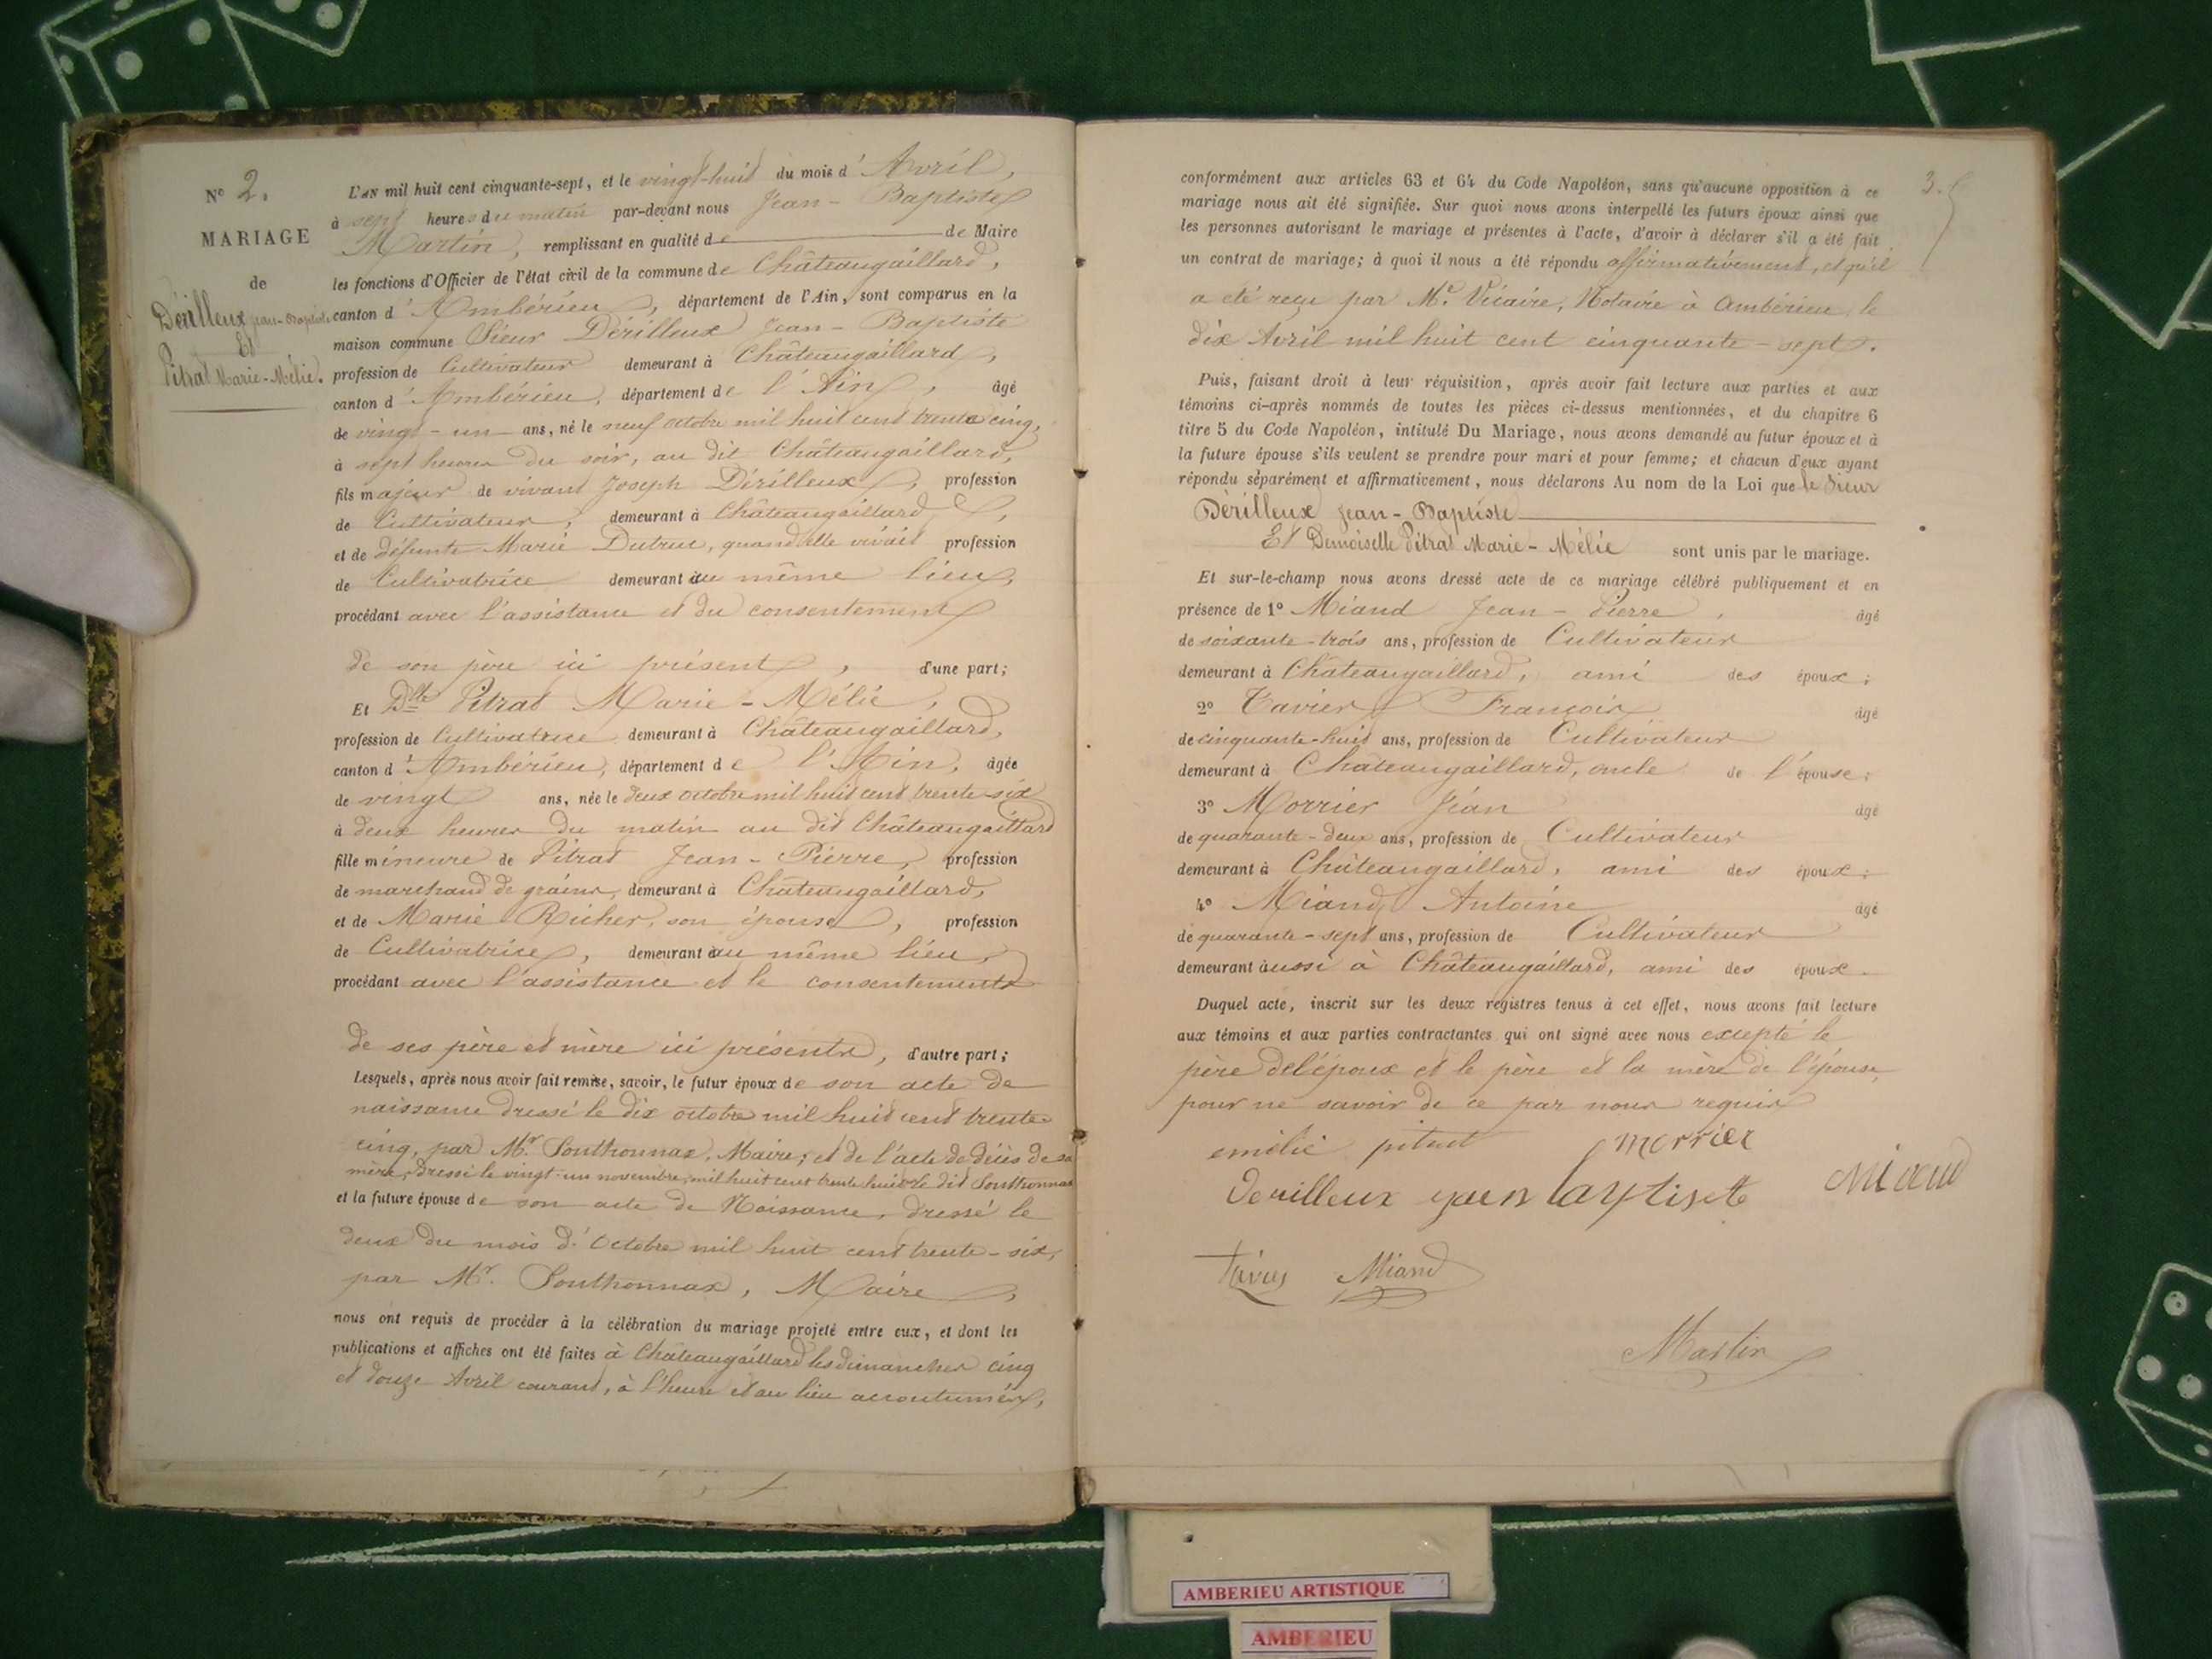 N° 2.
MARIAGE
de
Dérilleux Jean-Baptiste
Et
Pitrat Marie-Mélie.
L'AN mil huit cent cinquante-sept, et le vingt-huit du mois d'Avril,
à sept heures du matin par-devant nous Jean-Baptiste
Martin, remplissant en qualité de de Maire
les fonctions d'Officier de l'état civil de la commune de Châteaugaillard,
canton d'Ambérieu, département de l'Ain, sont comparus en la
maison commune Sieur Dérilleux Jean-Baptiste
profession de Cultivateur demeurant à Châteaugaillard,
canton d'Ambérieu, département de l'Ain, âgé
de vingt-un ans, né le neuf octobre mil huit cent trente cinq,
à sept heures du soir, au dit Châteaugaillard,
fils majeur de vivant Joseph Dérilleux, profession
de Cultivateur, demeurant à Châteaugaillard,
et de défunte Marie Dutruc, quand elle vivait profession
de Cultivatrice demeurant au même lieu,
procédant avec l'assistance et du consentement
de son père ici présent, d'une part;
Et Dlle Pitrat Marie-Mélie,
profession de Cultivatrice demeurant à Châteaugaillard,
canton d'Ambérieu, département de l'Ain, âgée
de vingt ans, née le deux octobre mil huit cent trente-six
à deux heures du matin au dit Châteaugaillard
fille mineure de Pitrat Jean-Pierre, profession
de marchand de grains, demeurant à Châteaugaillard,
et de Marie Richer, son épouse, profession
de Cultivatrice, demeurant au même lieu,
procédant avec l'assistance et le consentement
de ses père et mère ici présents, d'autre part;
Lesquels, après nous avoir fait remise, savoir, le futur époux de son acte de
naissance dressé le dix octobre mil huit cent trente
cinq, par Mr. Southonnax, Maire, et de l'acte de décès de sa
mère, dressé le vingt-un novembre, mil huit cent trente huit le dit Southonnax
et la future épouse de son acte de Naissance, dressé le
deux du mois d'Octobre mil huit cent trente-six,
par Mr. Southonnax, Maire,
nous ont requis de procéder à la célébration du mariage projeté entre eux, et dont les
publications et affiches ont été faites à Châteaugaillard les dimanches cinq
et douze Avril courant, à l'heure et au lieu accoutumés,
3.
conformément aux articles 63 et 64 du Code Napoléon, sans qu'aucune opposition à ce
mariage nous ait été signifiée. Sur quoi nous avons interpellé les futurs époux ainsi que
les personnes autorisant le mariage et présentes à l'acte, d'avoir à déclarer s'il a été fait
un contrat de mariage; à quoi il nous a été répondu affirmativement, et qu'il
a été reçu par Me. Vicaire, Notaire à Ambérieu, le
dix Avril mil huit cent cinquante-sept.
Puis, faisant droit à leur réquisition, après avoir fait lecture aux parties et aux
témoins ci-après nommés de toutes les pièces ci-dessus mentionnées, et du chapitre 6
titre 5 du Code Napoléon, intitulé Du Mariage, nous avons demandé au futur époux et à
la future épouse s'ils veulent se prendre pour mari et pour femme; et chacun d'eux ayant
répondu séparément et affirmativement, nous déclarons Au nom de la Loi que le Sieur
Dérilleux Jean-Baptiste
Et Demoiselle Pitrat Marie-Mélie sont unis par le mariage.
Et sur-le-champ nous avons dressé acte de ce mariage célébré publiquement et en
présence de 1° Miand Jean-Pierre, âgé
de soixante-trois ans, profession de Cultivateur
demeurant à Châteaugaillard, ami des époux;
2° Tavier François âgé
de cinquante-huit ans, profession de Cultivateur
demeurant à Châteaugaillard, oncle de l'épouse;
3° Morrier Jean âgé
de quarante-deux ans, profession de Cultivateur
demeurant à Châteaugaillard, ami des époux;
4° Miand Antoine âgé
de quarante-sept ans, profession de Cultivateur
demeurant aussi à Châteaugaillard, ami des époux.
Duquel acte, inscrit sur les deux registres tenus à cet effet, nous avons fait lecture
aux témoins et aux parties contractantes qui ont signé avec nous excepté le
père de l'époux et le père et la mère de l'épouse,
pour ne savoir de ce par nous requis
emélie pitrat morrier
Derilleux jaen baptiste Miand
Tavier Miand
Martin
AMBERIEU ARTISTIQUE
AMBERIEU